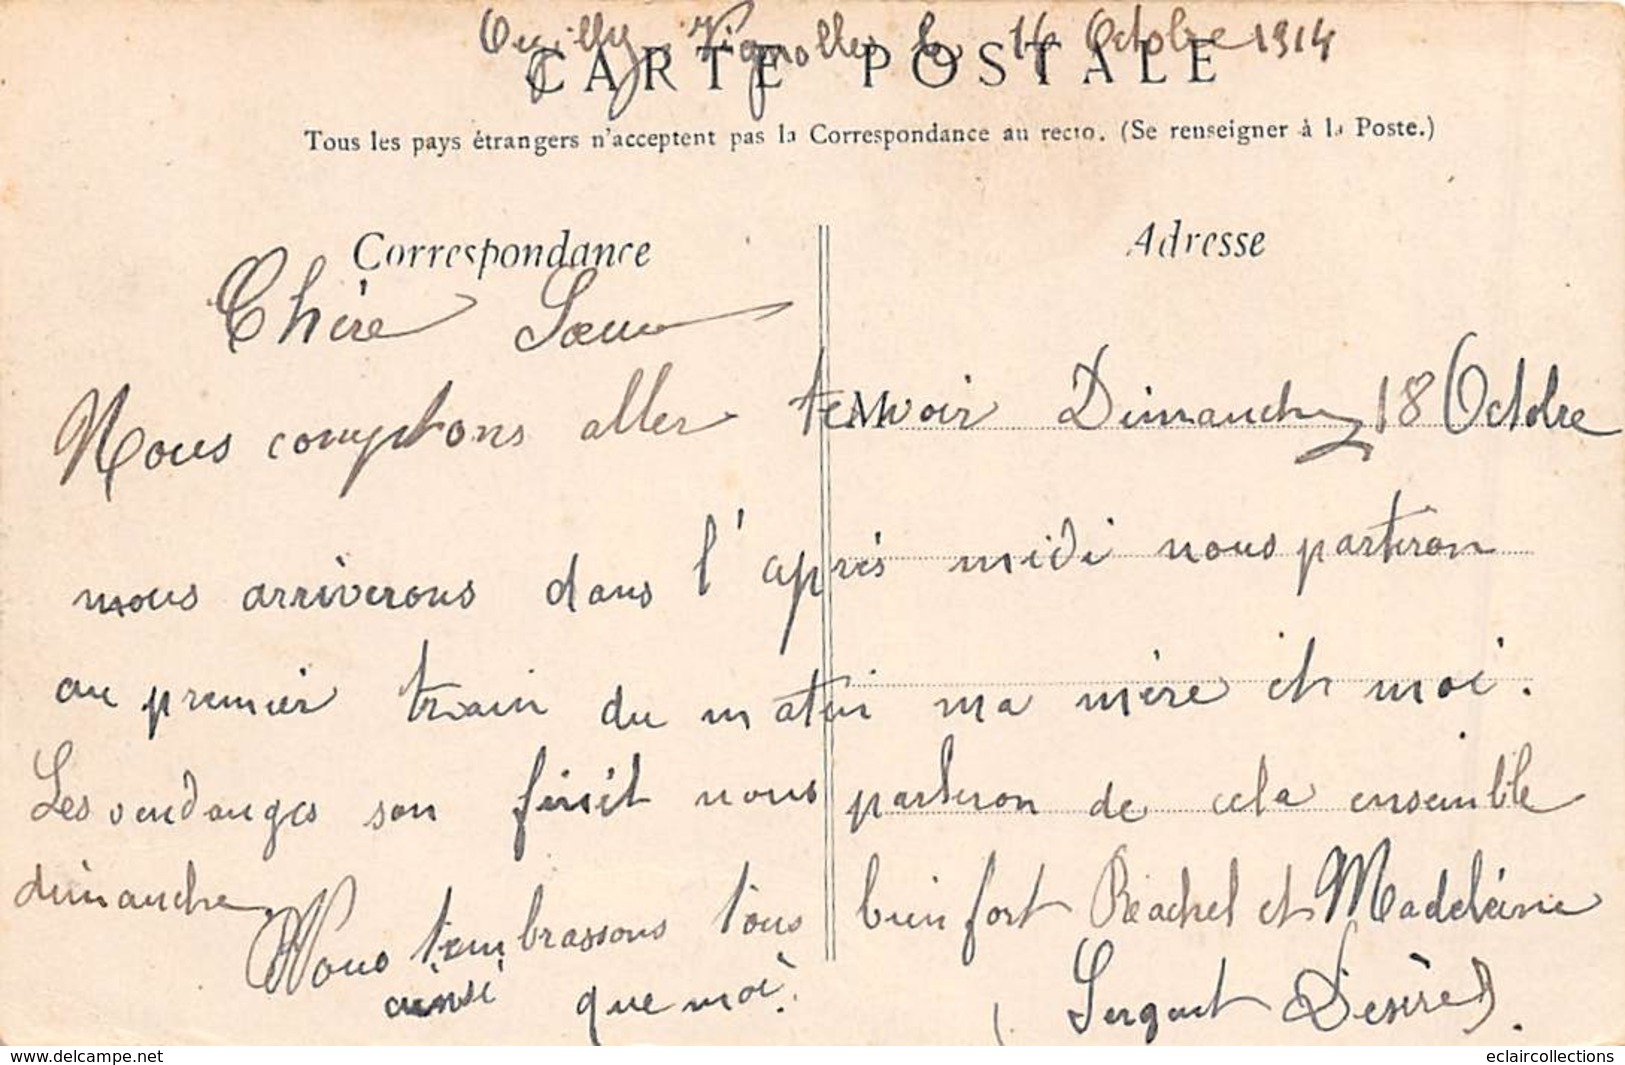 Vignolles le 14 Octobre 1914
CARTE POSTALE
Tous les pays étrangers n'acceptent pas la Correspondance au recto. (Se renseigner à la Poste.)
Correspondance
Adresse
Chère Sœur
Nous comptons aller te voir Dimanche 18 Octobre
M
nous arriverons dans l'après midi nous partiron
au premier train du matin ma mère et moi.
Les vendanges son finit nous parleron de cela ensemble
dimanche.
Nous t'embrassons tous bien fort Rachel et Madeleine
ainsi que moi.
(Sergent Désiré).
www.delcampe.net
eclaircollections